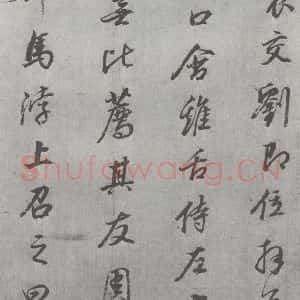 交劉即位拜
口含雞舌侍左
比薦其友周
馬浮上召之
Shufawang.CN